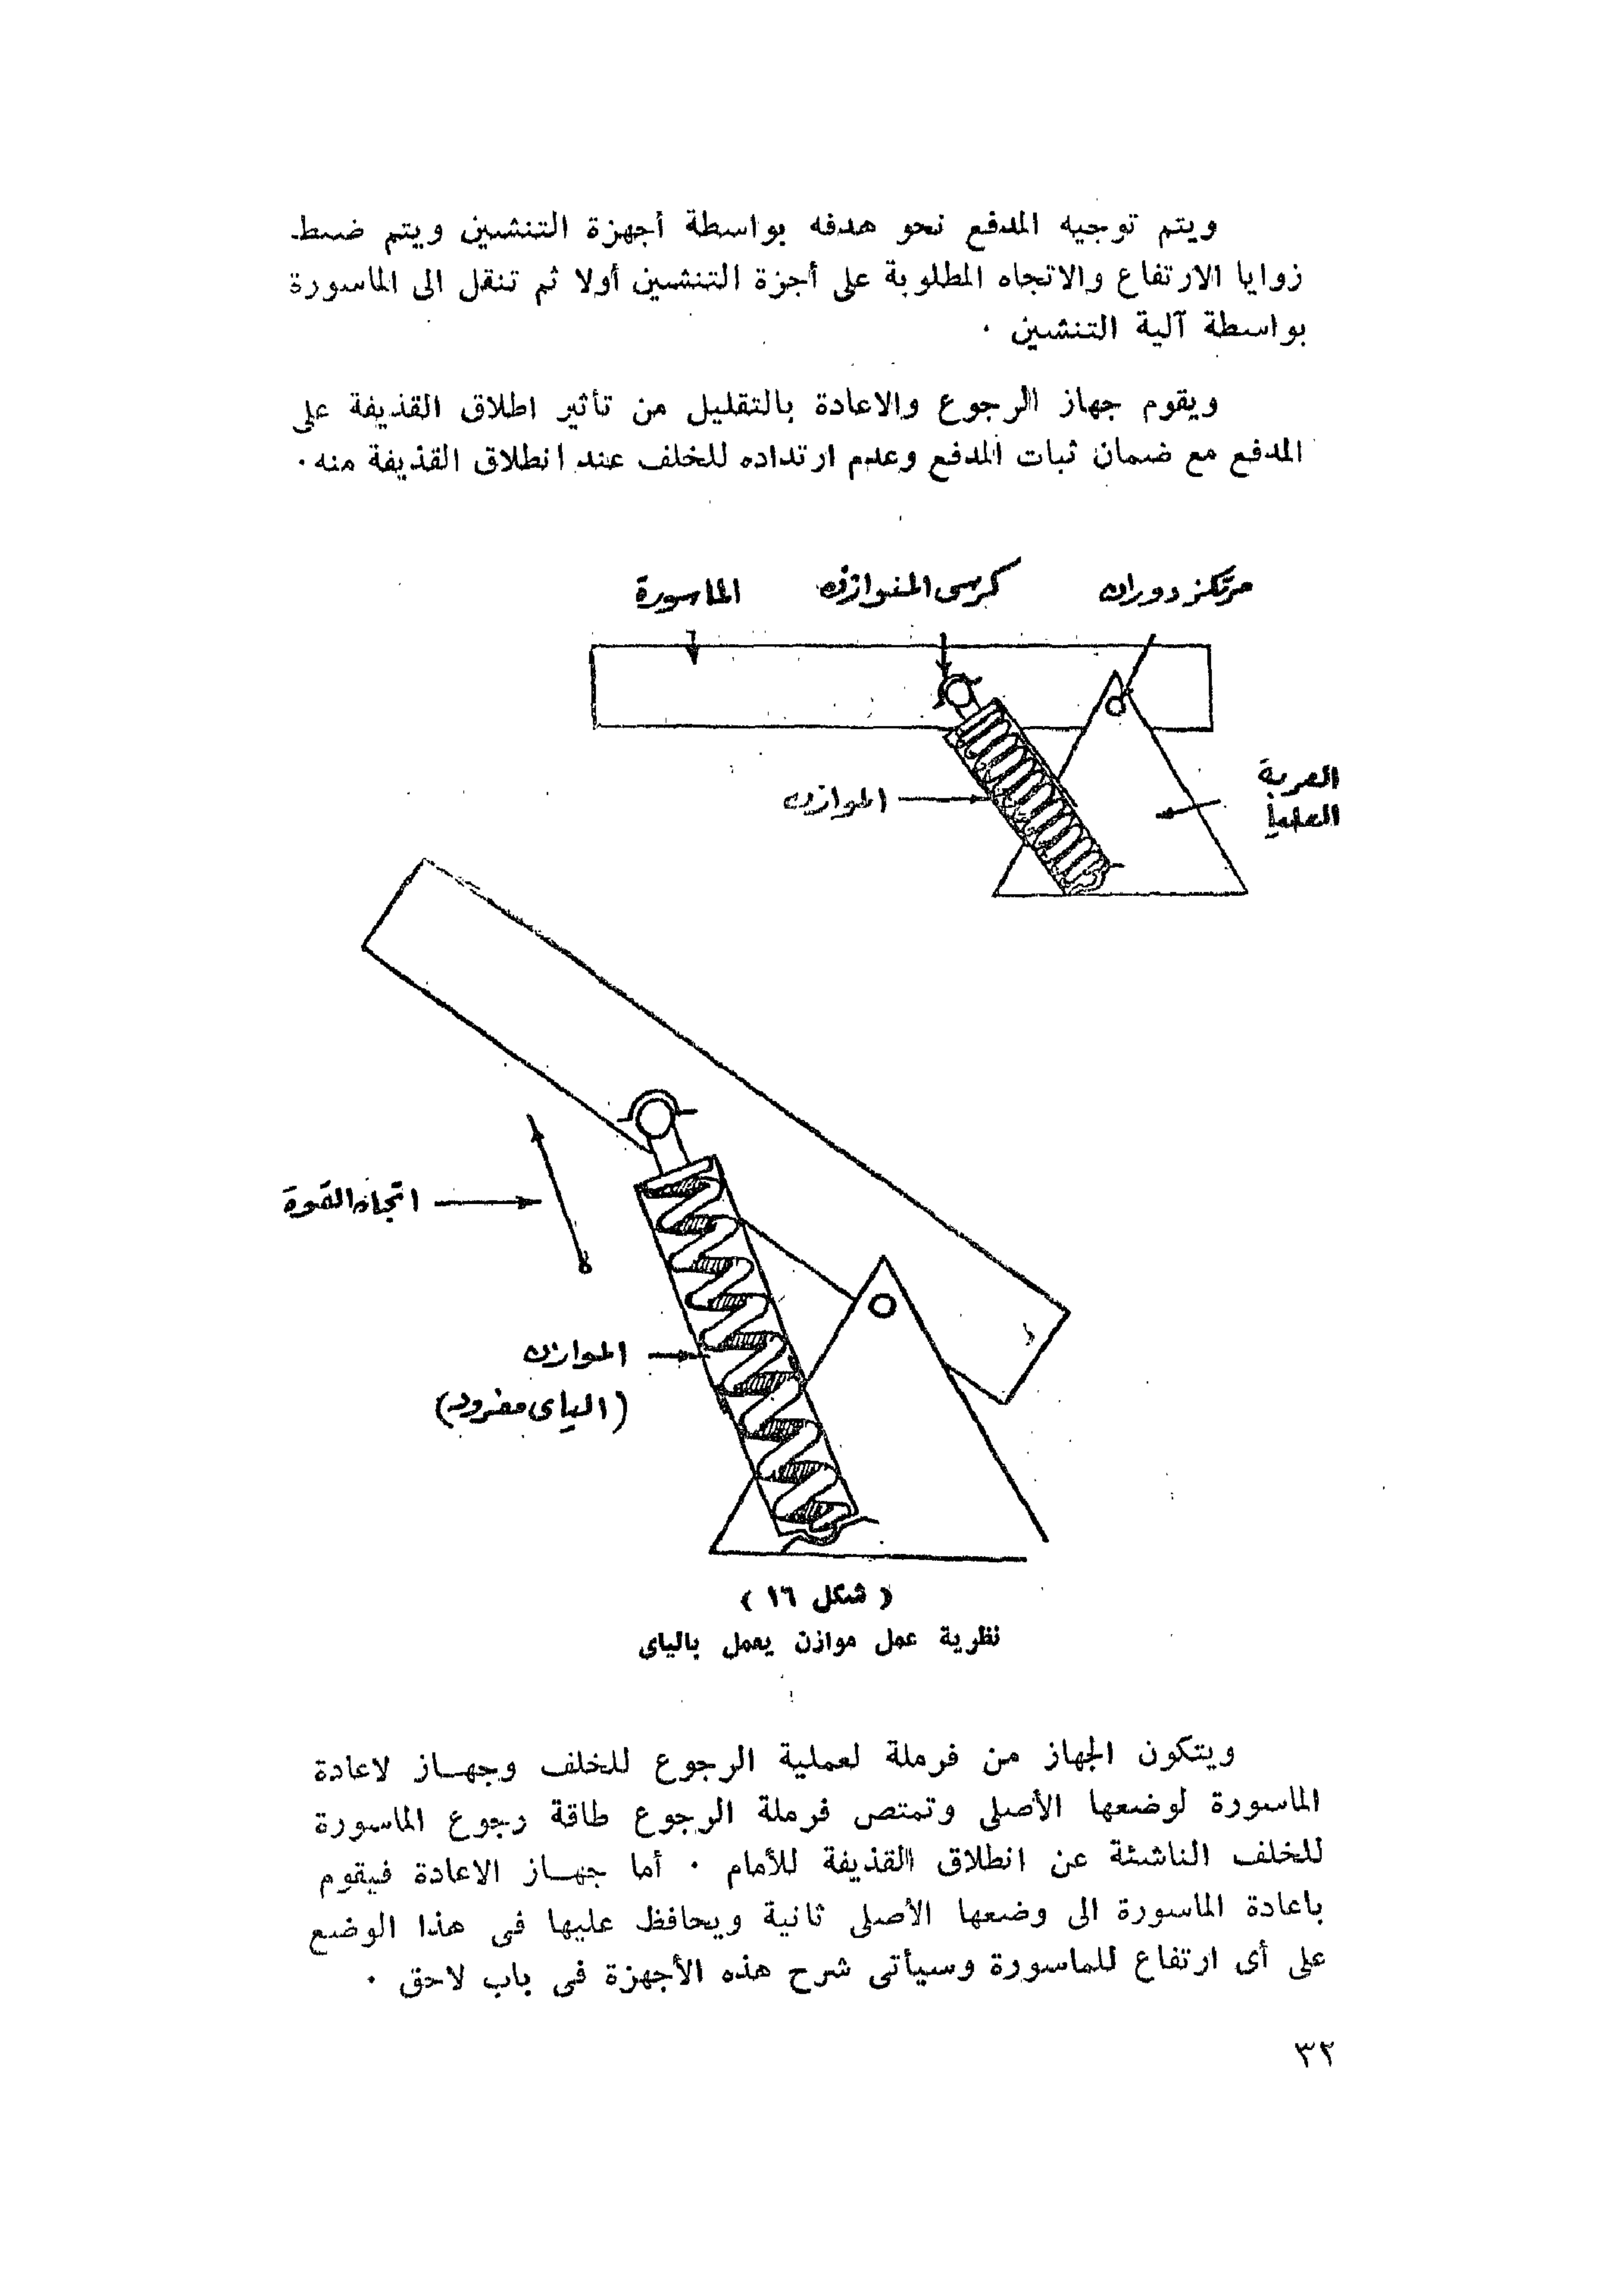 ويتم توجيه المدفع نحو هدفه بواسطة أجهزة التنشين ويتم ضبط
زوايا الارتفاع والاتجاه المطلوبة على أجزة التنشين أولا ثم تنقل الى الماسورة
بواسطة آلية التنشين .
ويقوم جهاز الرجوع والاعادة بالتقليل من تأثير اطلاق القذيفة على
المدفع مع ضمان ثبات المدفع وعدم ارتداده للخلف عند انطلاق القذيفة منه .
مرتكز دوران
كرسى المتوازن
الماسورة
العربة
العليا
الموازن
اتجاه القوة
الموازن
(الياى مفرود)
( شكل ١٦ )
نظرية عمل موازن يعمل بالياى
ويتكون الجهاز من فرملة لعملية الرجوع للخلف وجهــاز لاعادة
الماسورة لوضعها الأصلى وتمتص فرملة الرجوع طاقة رجوع الماسورة
للخلف الناشئة عن انطلاق القذيفة للأمام . أما جهــاز الاعادة فيقوم
باعادة الماسورة الى وضعها الأصلى ثانية ويحافظ عليها فى هذا الوضع
على أى ارتفاع للماسورة وسيأتى شرح هذه الأجهزة فى باب لاحق .
٣٢